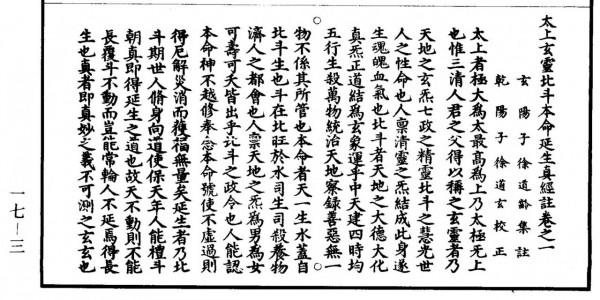 太上玄靈北斗本命延生真經註卷之一
玄陽子徐道齡集註
乾陽子徐道玄校正
太上者極大為太最高為上乃太極无上
也惟三清人君之父得以稱之玄靈者乃
天地之玄炁七政之精靈北斗之慧光世
人之性命也人禀清靈之炁結成此身遂
生魂魄血氣也北斗者天地之大德大化
真炁正道結為玄象運乎中天建四時均
五行生殺萬物統治天地察錄善惡無一
物不係其所管也本命者天一生水蓋自
北斗生也斗在北旺於水司生司殺養物
濟人之都會也人禀天地之炁為男為女
可壽可夭皆出乎北斗之政令也人能認
本命神不越修奉念本命號使不虛過則
得厄解災消而獲福無量矣延生者乃北
斗期世人脩身向道使保天年人能禮斗
朝真即得延生之道也故天不動則不能
長覆斗不動而豈能常輪人不延焉得長
生也真者即真妙之義不可測之玄玄也
一七—三